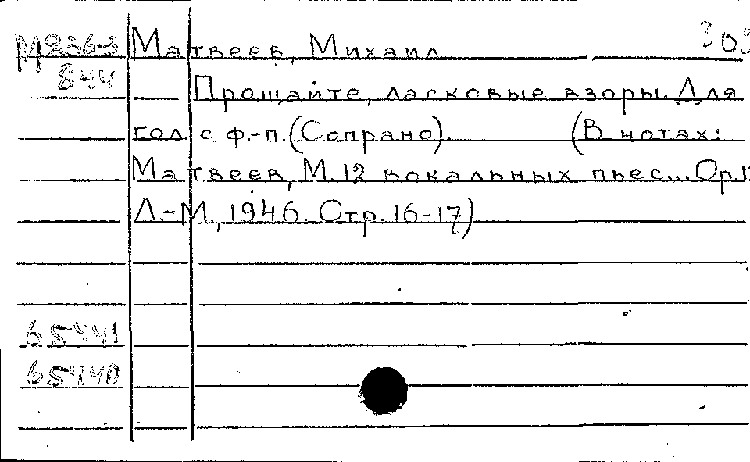 М236-3 Матвеев, Михаил 303
844 Прощайте, ласковые взоры. Для
гол с ф.-п. (Сопрано). (В нотах:
Матвеев, М. 12 вокальных пьес... Ор.
Л.-М., 1946. Стр. 16-17)
65441
65440